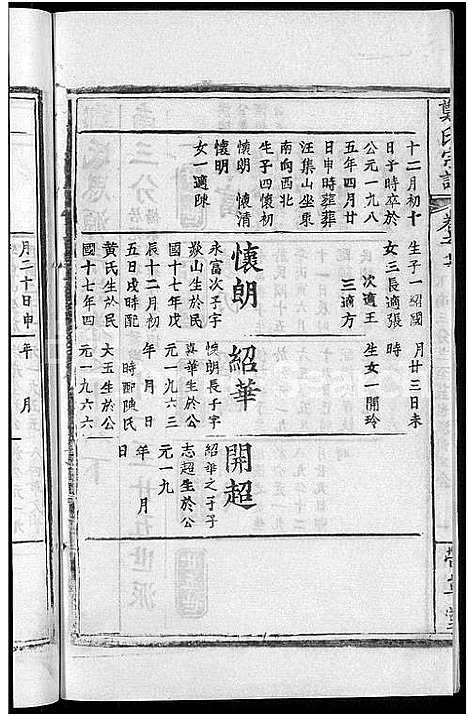 鄭氏宗譜
十二月初十
日子時卒於
公元一九八
五年四月廿
日申時葬葬
汪集山坐東
南向西北
生子四懷初
懷朗 懷清
懷明
女一適陳
生子一紹國
女三長適張
次適王
三適方
懷朗
永富次子字
山生於民
國十七年戊
辰十二月初
五日戌時配
黃氏生於民
國十七年四
月廿三日未
時
生女一開玲
紹華
懷朗長子字
真華生於公
元一九六三
年 月 日
時配陳氏
大玉生於公
元一九六六
開超
紹華之子字
志超生於公
元一九
年 月
日
月二十日申
年 月